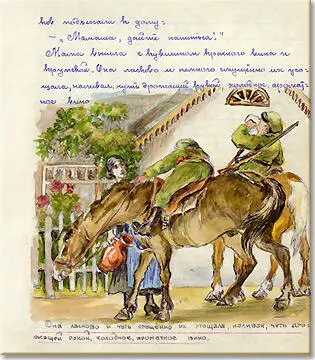 ков подъезжали к дому:
— „Мамаша, дайте напиться!"
Мама вышла с кувшином красного вина и
кружкой. Она ласково и немного смущённо их уго-
щала, наливая, чуть дрожащей рукой, холодное, аромат-
ное вино.
Она ласково и чуть смущённо их угощала, наливая, чуть дро-
жащей рукой, холодное, ароматное вино.